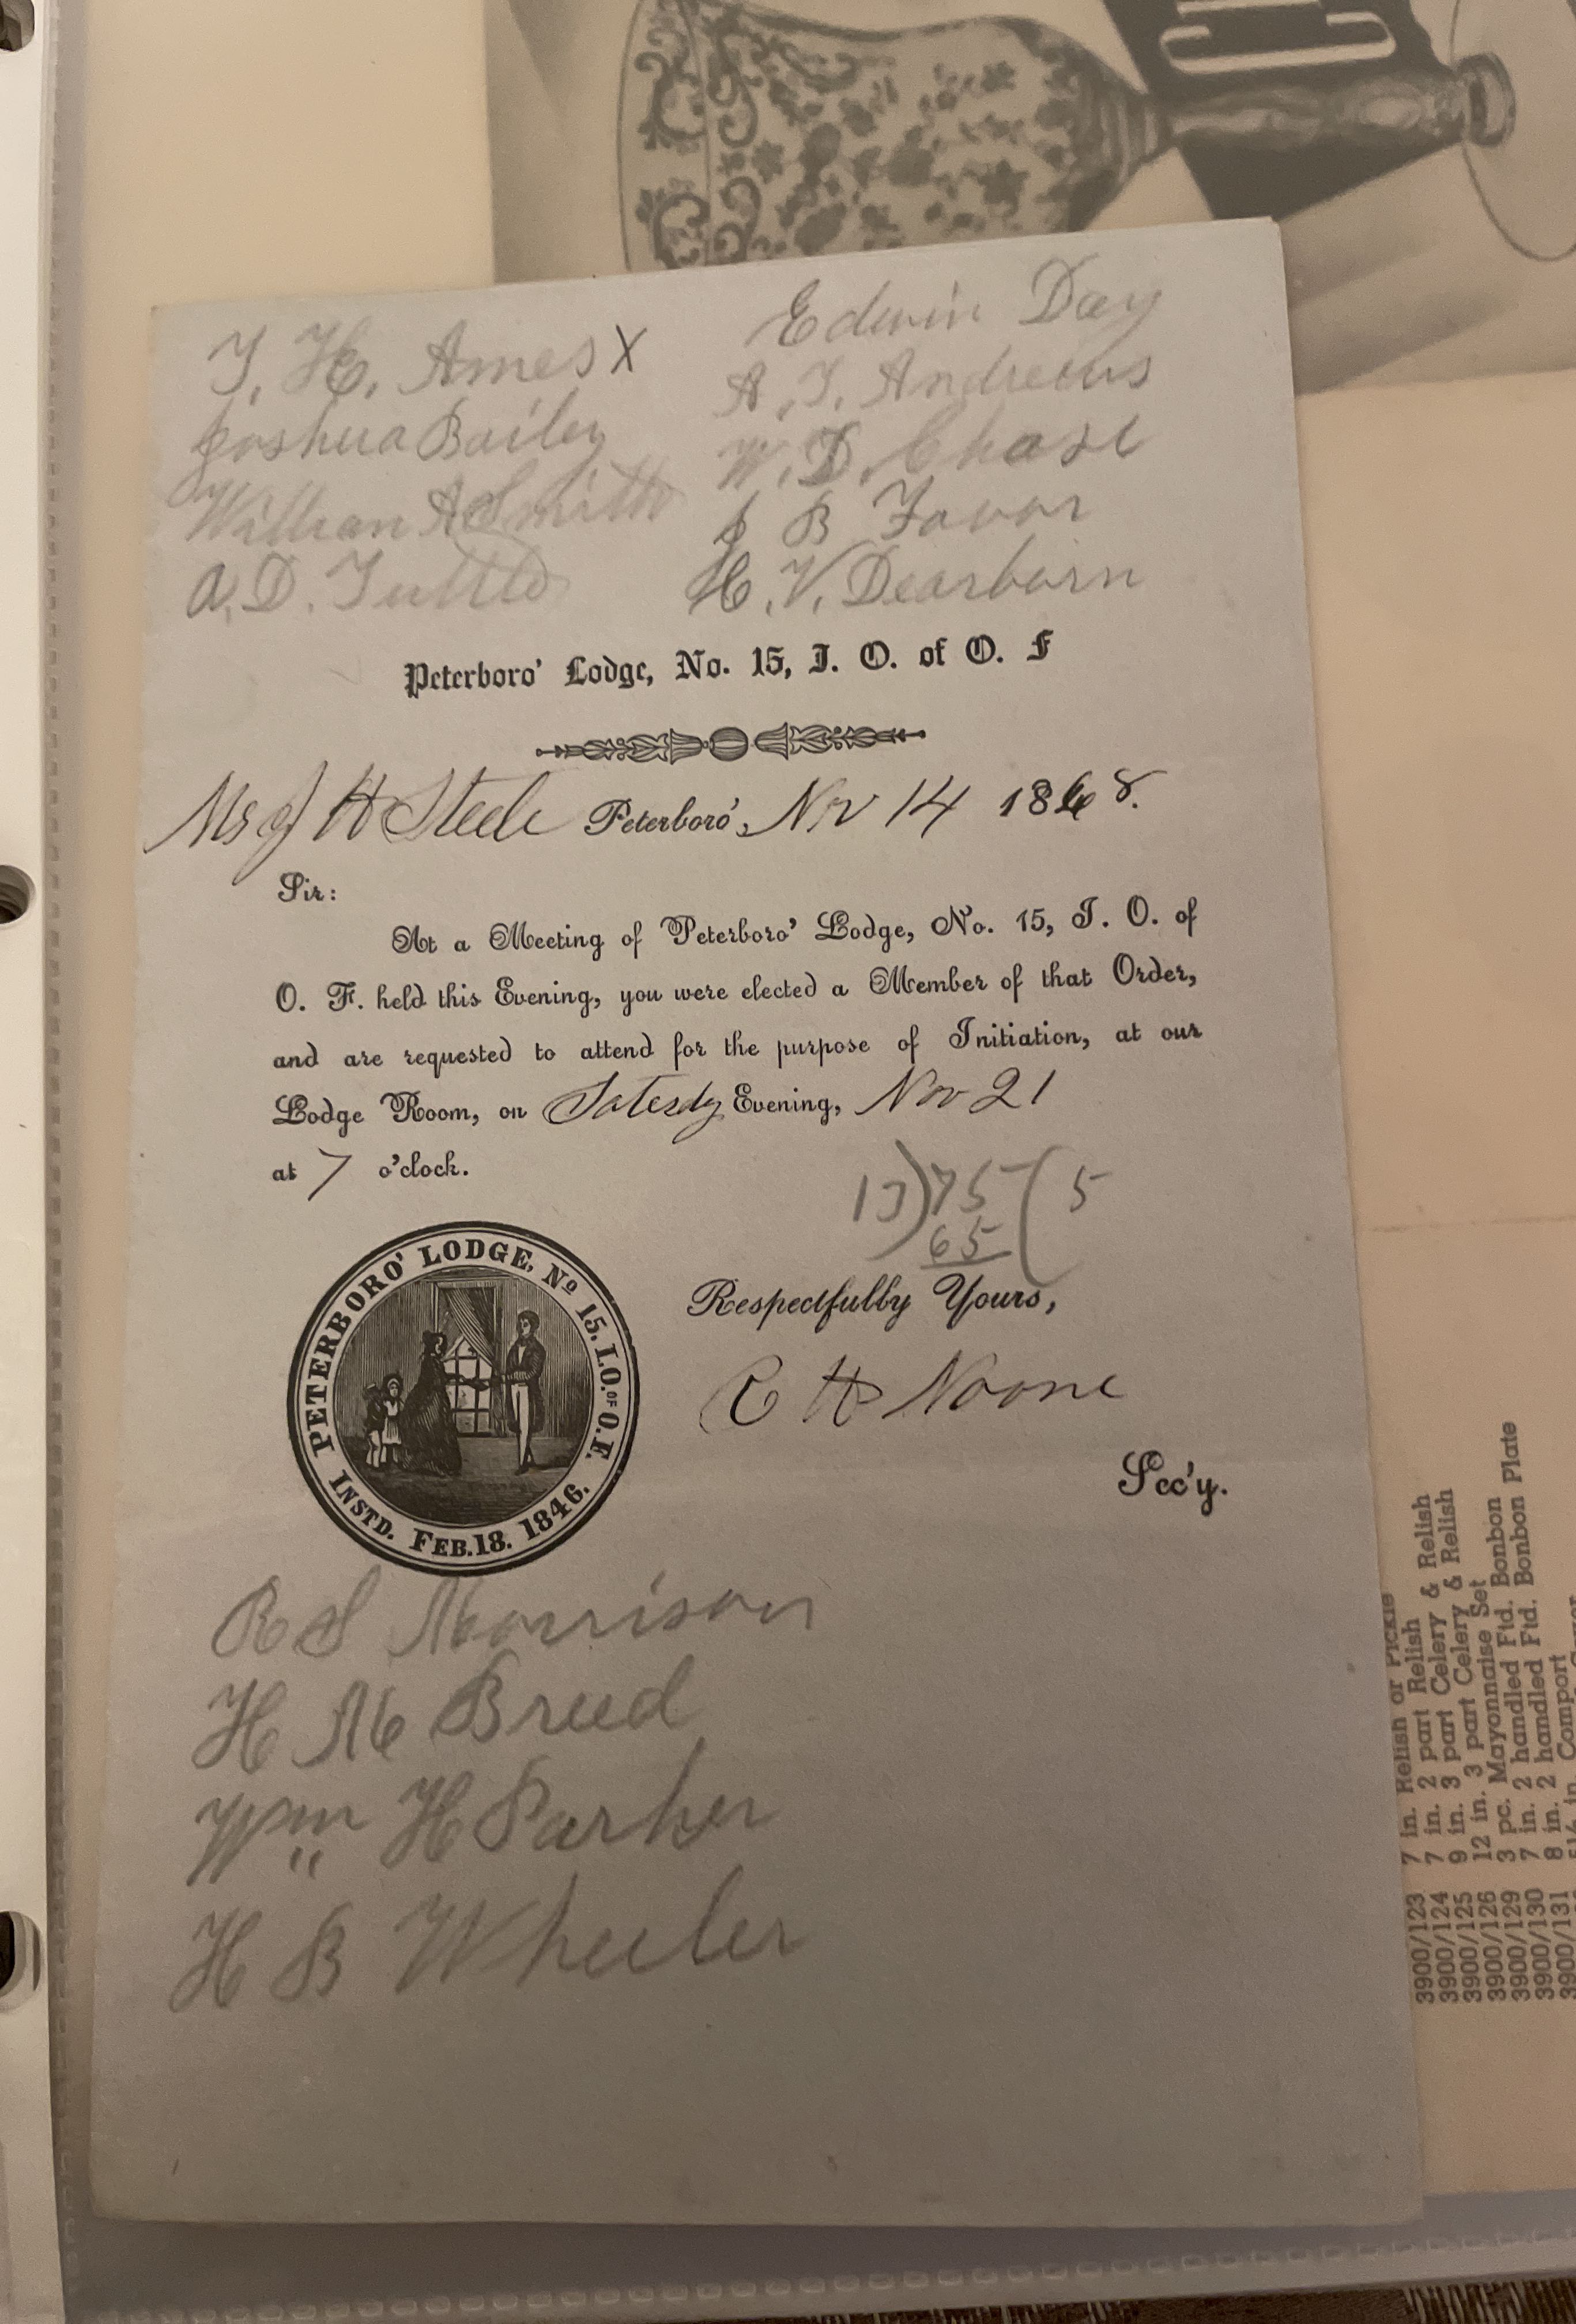 T. H. Ames X
Joshua Bailey
William A Smith
A. D. Tuttle
Edwin Day
A. T. Andrews
W. D. Chase
J B Favor
H. V. Dearborn
Peterboro' Lodge, No. 15, I. O. of O. F
Mr J H Steele Peterboro', Nov 14 1868.
Sir:
At a Meeting of Peterboro' Lodge, No. 15, I. O. of
O. F. held this Evening, you were elected a Member of that Order,
and are requested to attend for the purpose of Initiation, at our
Lodge Room, on Satesdy Evening, Nov 21
at 7 o'clock.
13)75(5
65
Respectfully Yours,
C H Noone
Sec'y.
PETERBORO' LODGE, No 15, I.O. OF O.F.
INSTD. FEB. 18. 1846.
R S Morrison
H M Breed
Wm H Parker
H B Wheeler
7 in. Relish or Pickle
3900/123
7 in. 2 part Relish
3900/124
9 in. 3 part Celery & Relish
3900/125
12 in. 3 part Celery & Relish
3900/126
3 pc. Mayonnaise Set
3900/129
7 in. 2 handled Ftd. Bonbon
3900/130
8 in. 2 handled Ftd. Bonbon Plate
3900/131
in. Comport